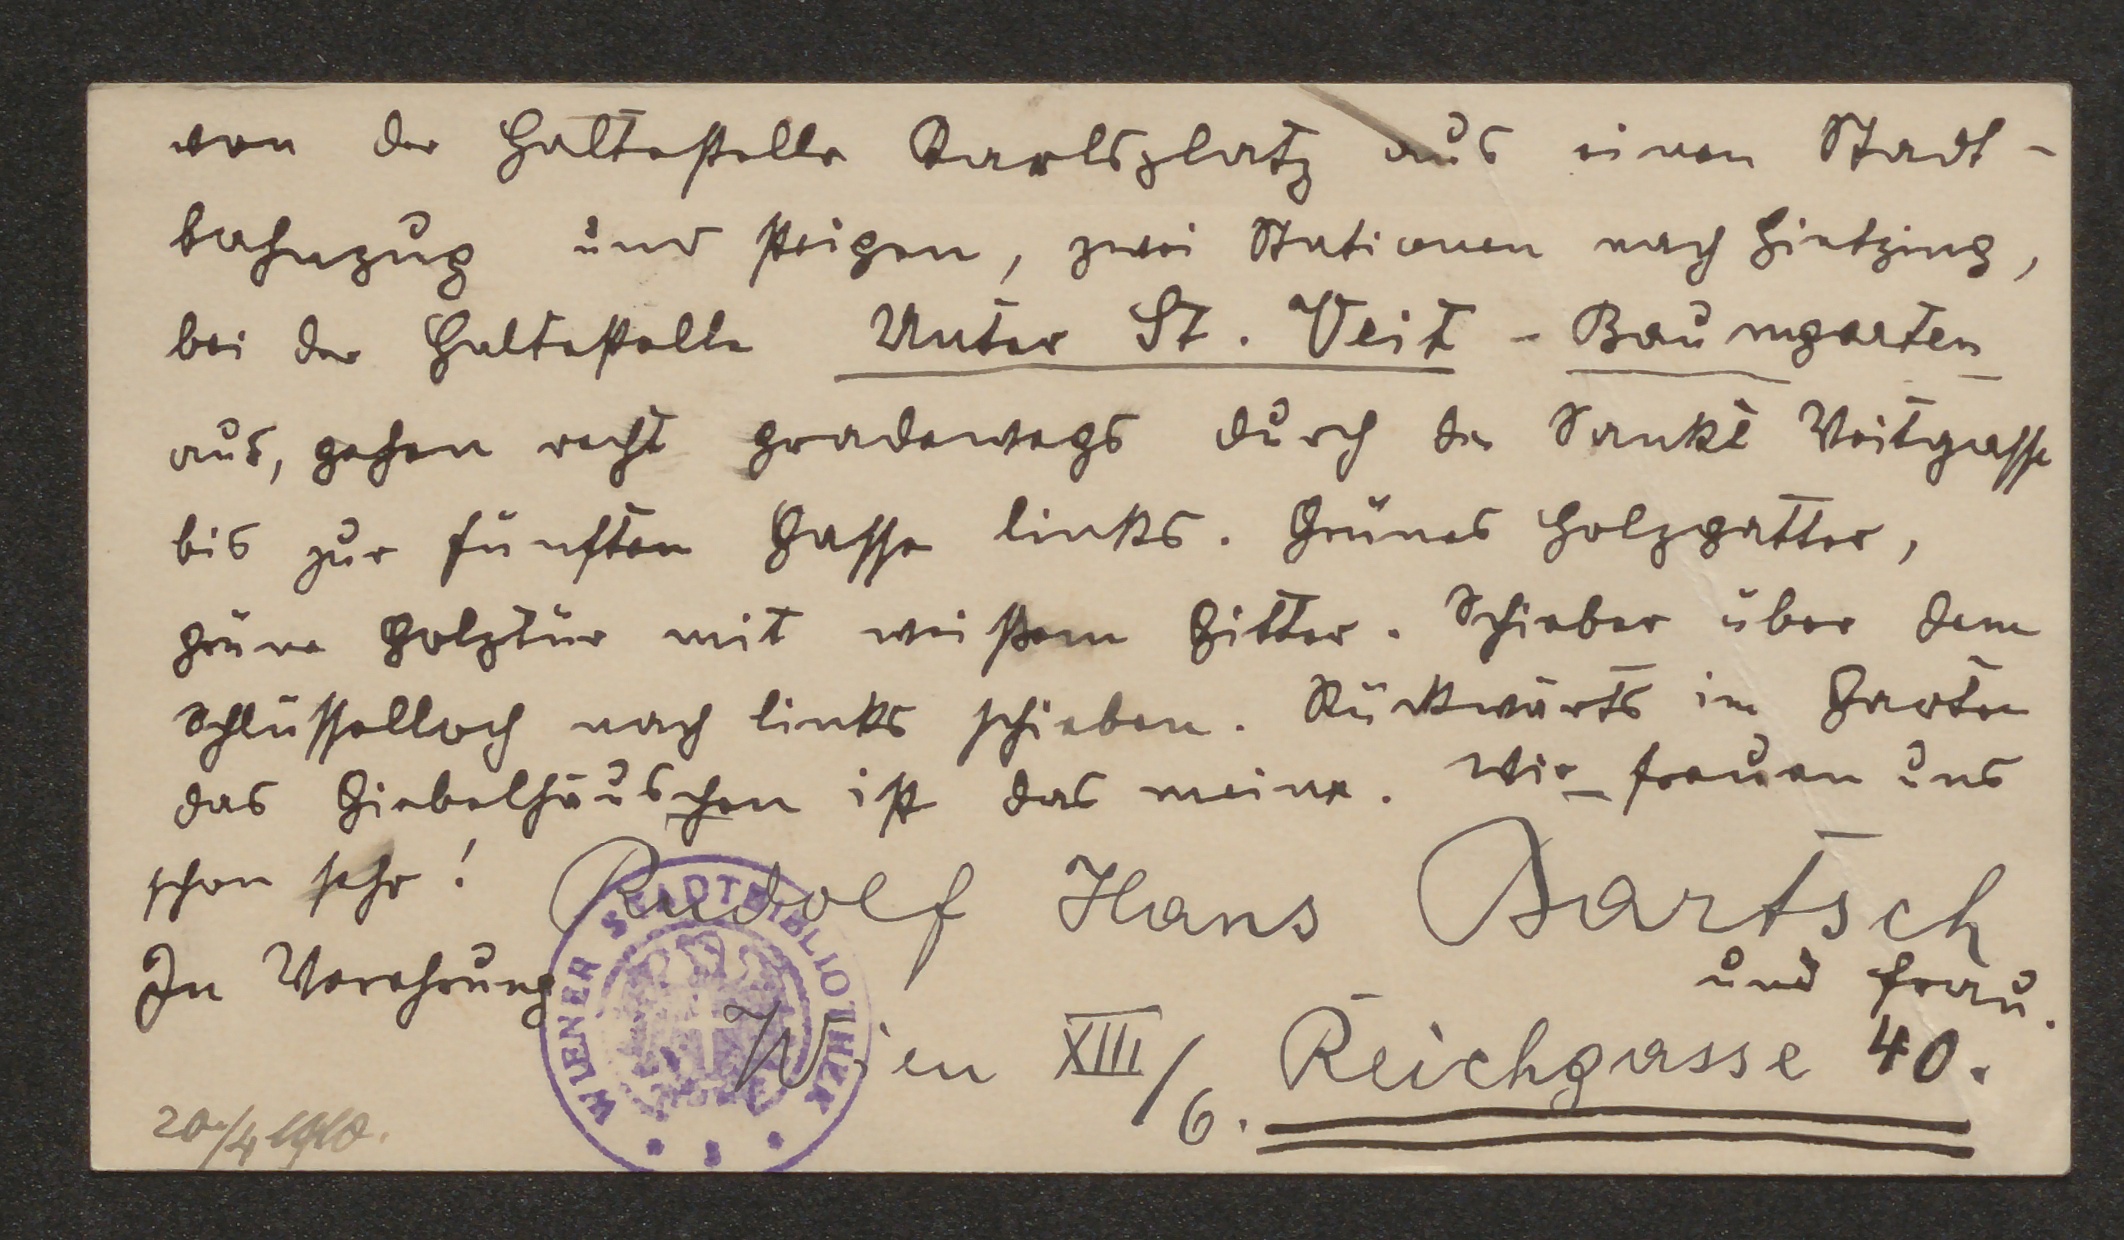 von der Haltestelle Karlsplatz aus einen Stadt-
bahnzug und steigen, zwei Stationen nach Hietzing,
bei der Haltestelle Unter St. Veit - Baumgarten
aus, gehen recht gradewegs durch die Sankt Veitgasse
bis zur fünften Gasse links. Grünes Holzgatter,
grüne Holztür mit weißem Gitter. Schieber über dem
Schlüsselloch nach links schieben. Rückwärts im Garten
das Giebelhäuschen ist das meine. Wir freuen uns
schon sehr! Rudolf Hans Bartsch
In Verehrung und Frau.
Wien XIII/6. Reichgasse 40.
20/4 1910.
WIENER STADTBIBLIOTHEK